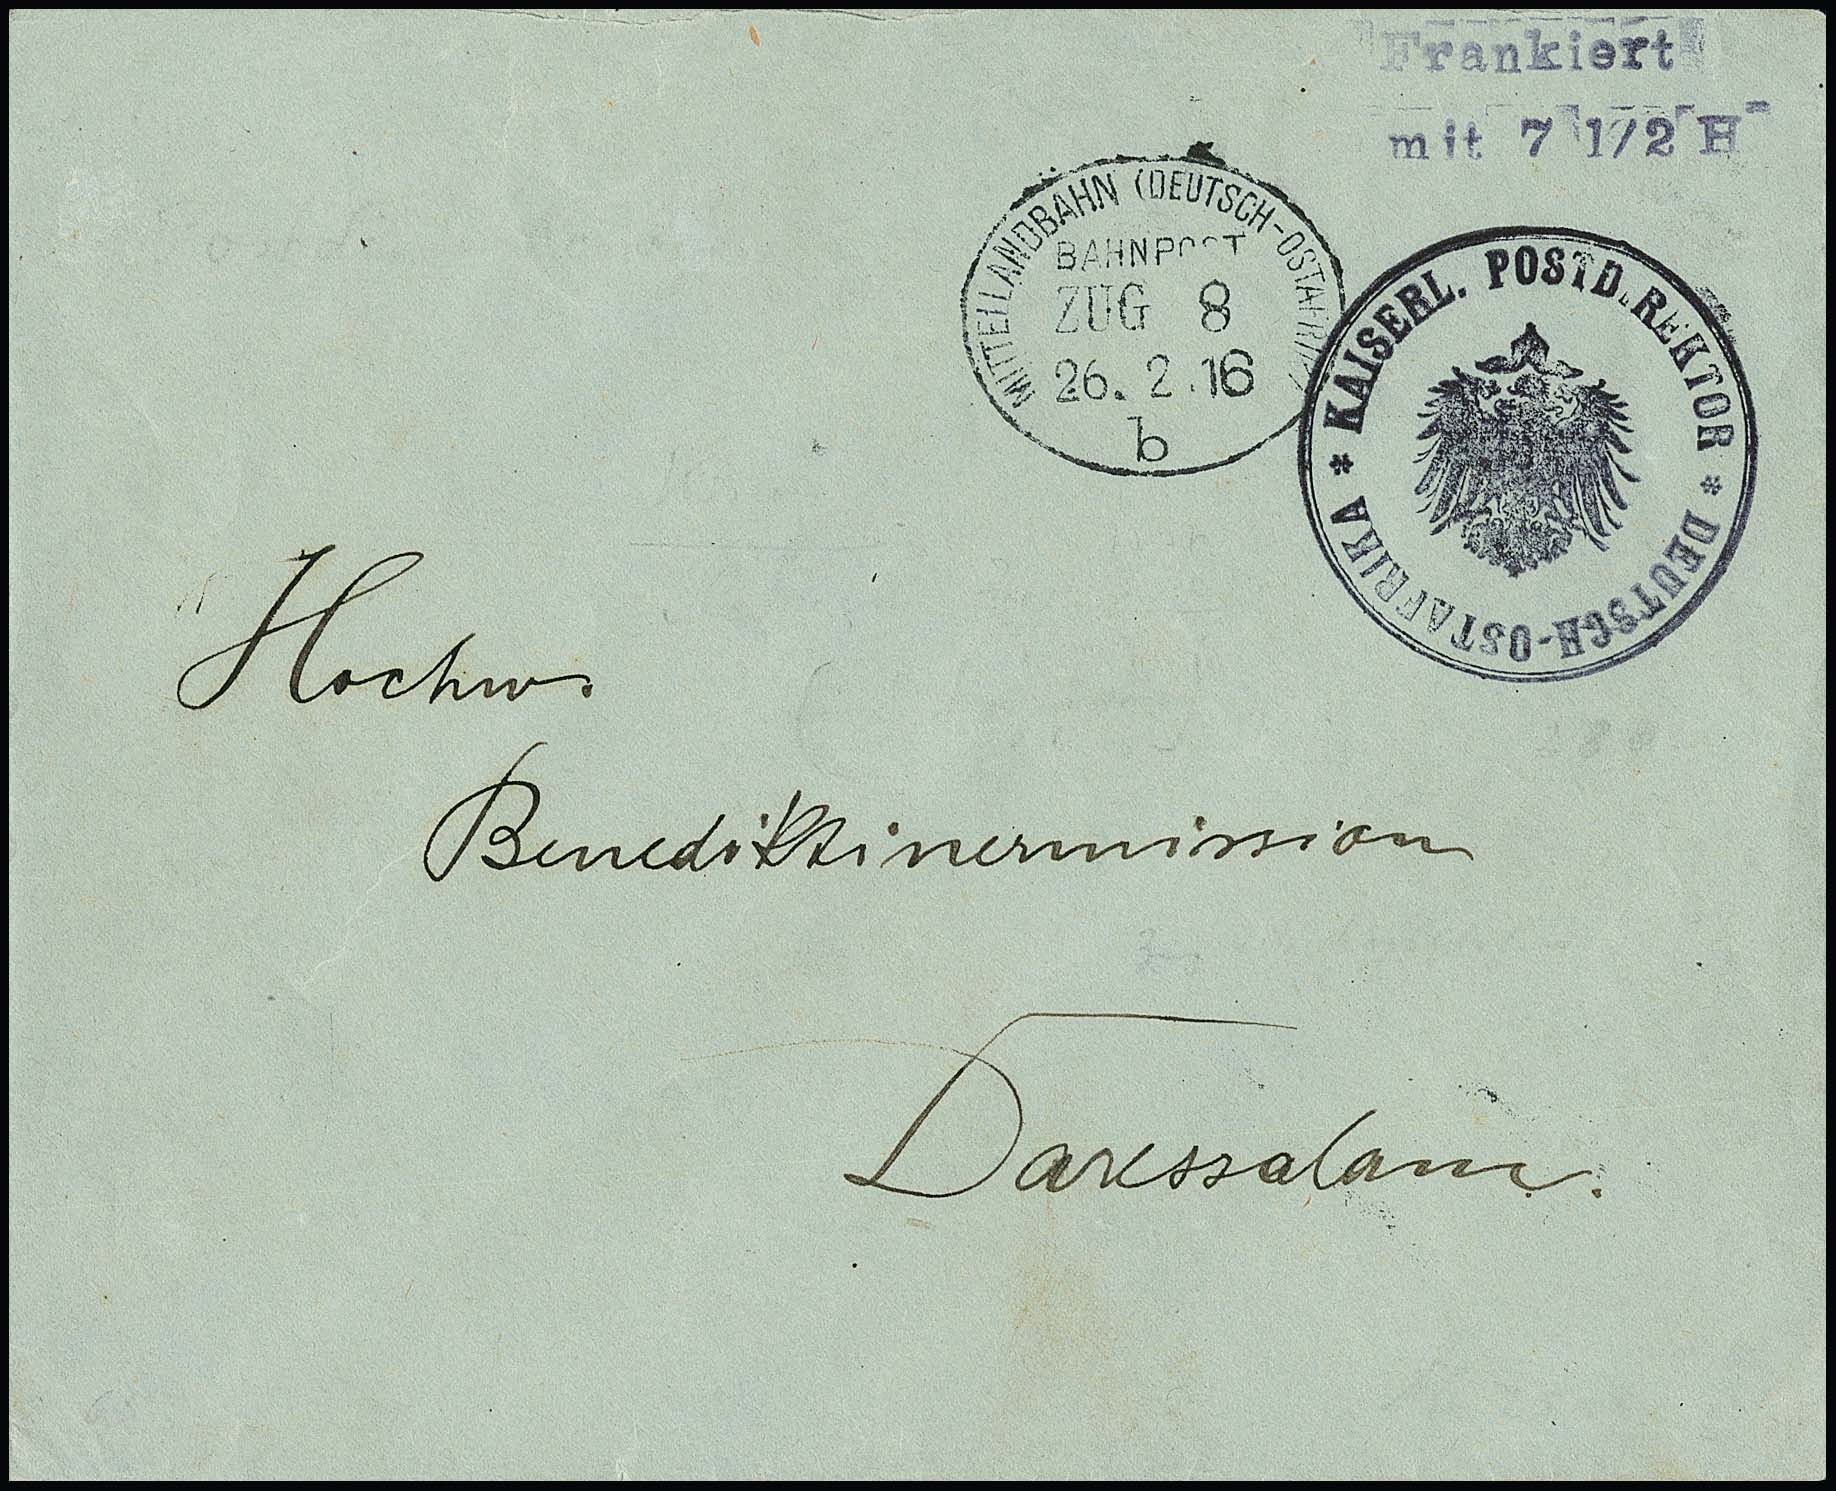 Frankiert
mit 7 1/2 H
MITTELLANDBAHN (DEUTSCH-OSTAFRIKA
BAHNPOST
ZUG 8
26. 2. 16
b
* KAISERL. POSTDIREKTOR * DEUTSCH-OSTAFRIKA
Hochw.
Benediktinermission
Daressalam.